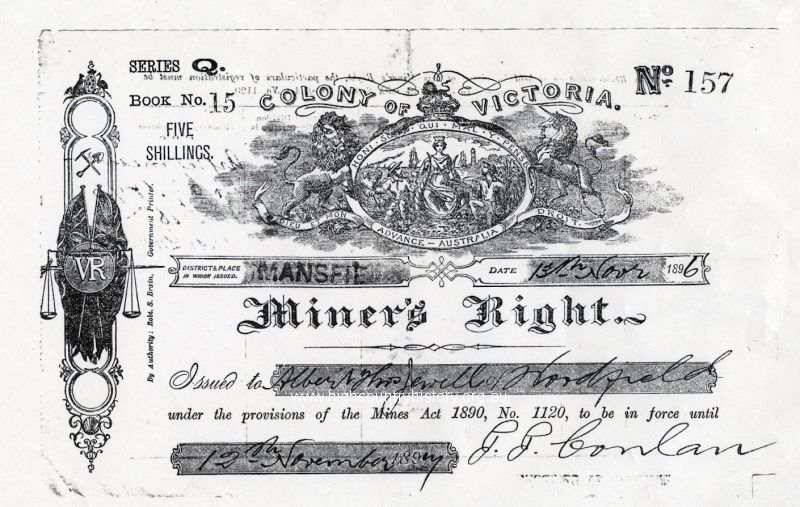 SERIES Q.
BOOK No. 15
FIVE
SHILLINGS.
COLONY OF VICTORIA.
No 157
HONI QUI MAL
DIEU MON DROIT
ADVANCE - AUSTRALIA
VR
By Authority: Robt. S. Brain, Government Printer.
DISTRICT & PLACE
IN WHICH ISSUED.
MANSFIE
DATE 13th Novr 1896
Miner's Right.
Issued to Albert Thos Jewell of Woodfield
www.highcountryhistory.org.au
under the provisions of the Mines Act 1890, No. 1120, to be in force until
12th November 1897